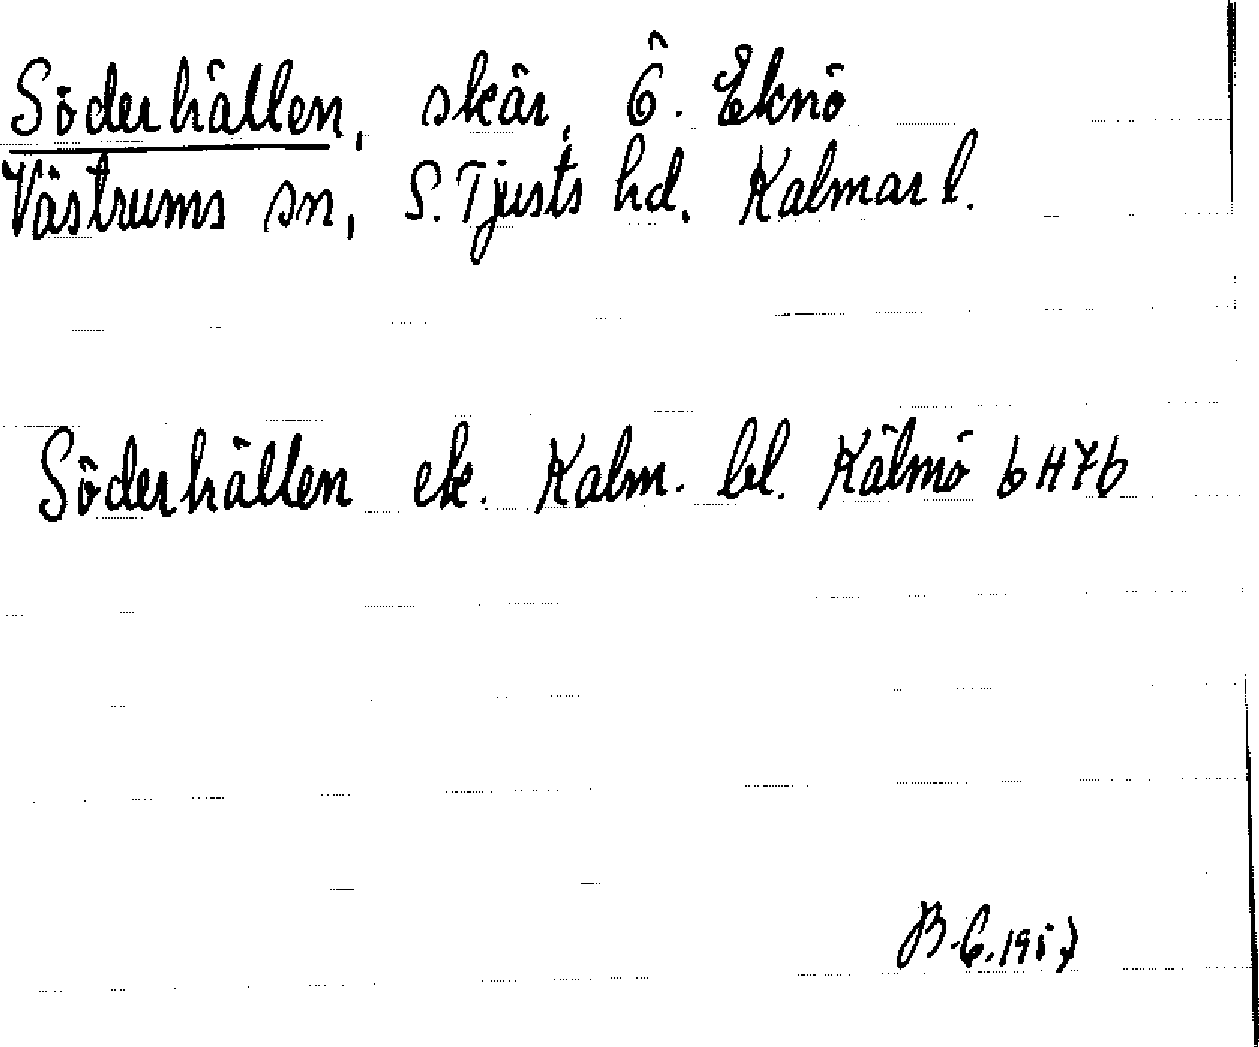 Söderhällen, skär, Ö. Eknö
Västrums sn, S. Tjusts hd. Kalmar l.
Söderhällen ek. Kalm. bl. Kälmö 6H7b
B.C. 1957